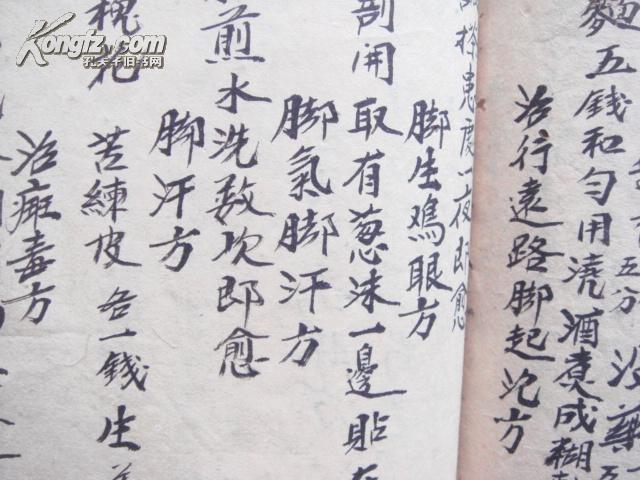 没藥五
五分
麵五錢和勻用澆酒煑成糊
治行遠路脚起泡方
患處一夜即愈
脚生鳮眼方
剖開取有葱沫一邊貼在
脚氣脚汗方
煎水洗数次即愈
脚汗方
槐花
苦練皮各一錢生
治痱毒方
Kongfz.com
孔夫子旧书网